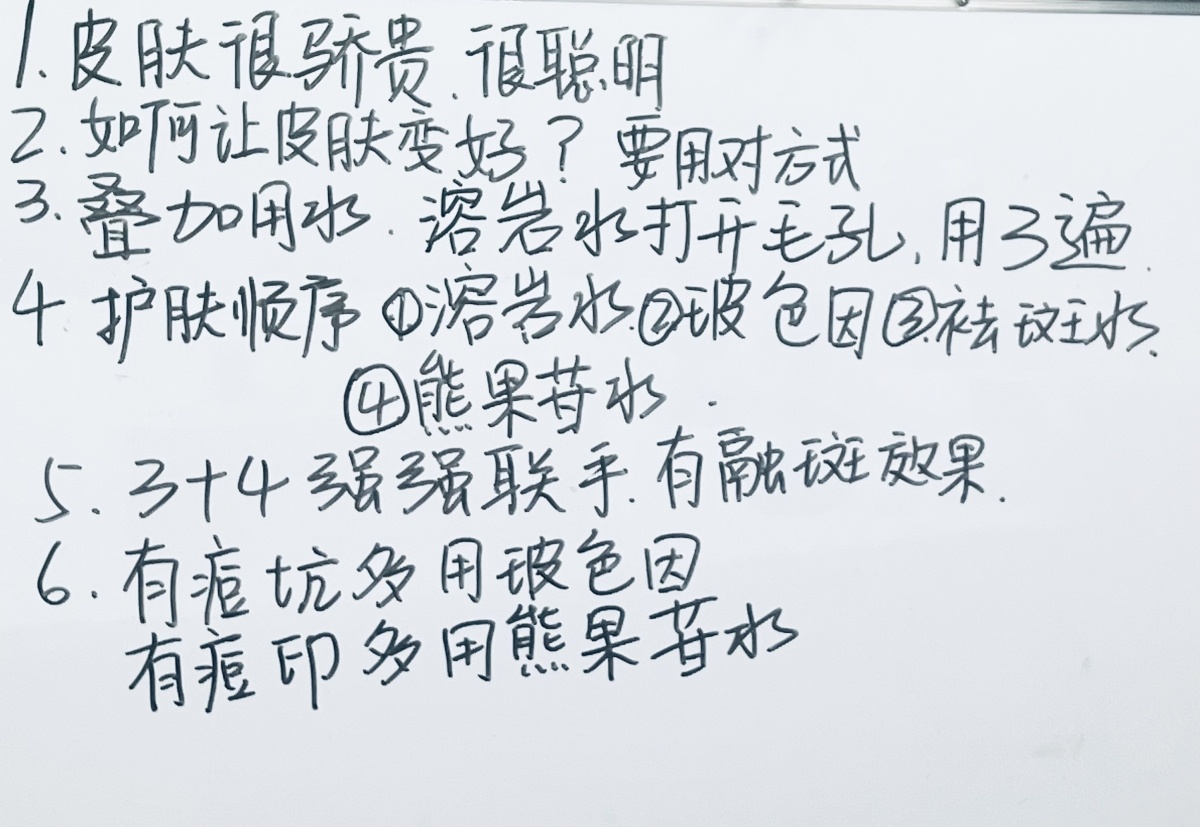 1.皮肤很骄贵.很聪明
2.如何让皮肤变好？要用对方式
3.叠加用水.溶岩水打开毛孔,用3遍.
4 护肤顺序①溶岩水.②玻色因③祛斑水.
④熊果苷水.
5.3+4强强联手.有融斑效果.
6.有痘坑多用玻色因
有痘印多用熊果苷水